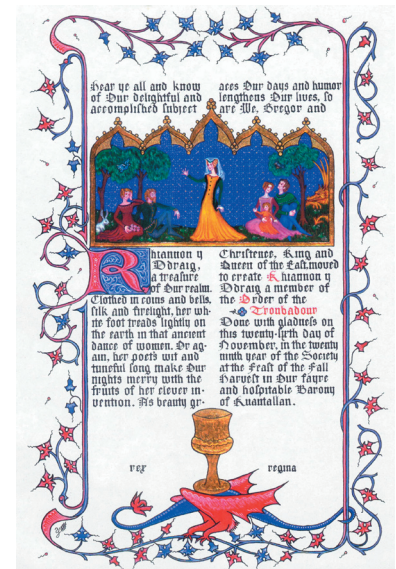 Hear ye all and know
of Our delightful and
accomplished subject
Rhiannon y
Ddraig,
a treasure
of Our realm.
Clothed in coins and bells,
silk and firelight, her wh-
ite foot treads lightly on
the earth in that ancient
dance of women. Or ag-
ain, her poet's wit and
tuneful song make Our
nights merry with the
fruits of her clever in-
vention. As beauty gr-
aces Our days and humor
lengthens Our lives, so
are We, Gregor and
Christence, King and
Queen of the East, moved
to create Rhiannon y
Ddraig a member of
the Order of the
Troubadour
Done with gladness on
this twenty-sixth day of
November, in the twenty
ninth year of the Society
at the Feast of the Fall
Harvest in Our fayre
and hospitable Barony
of Ruantallan.
rex
regina